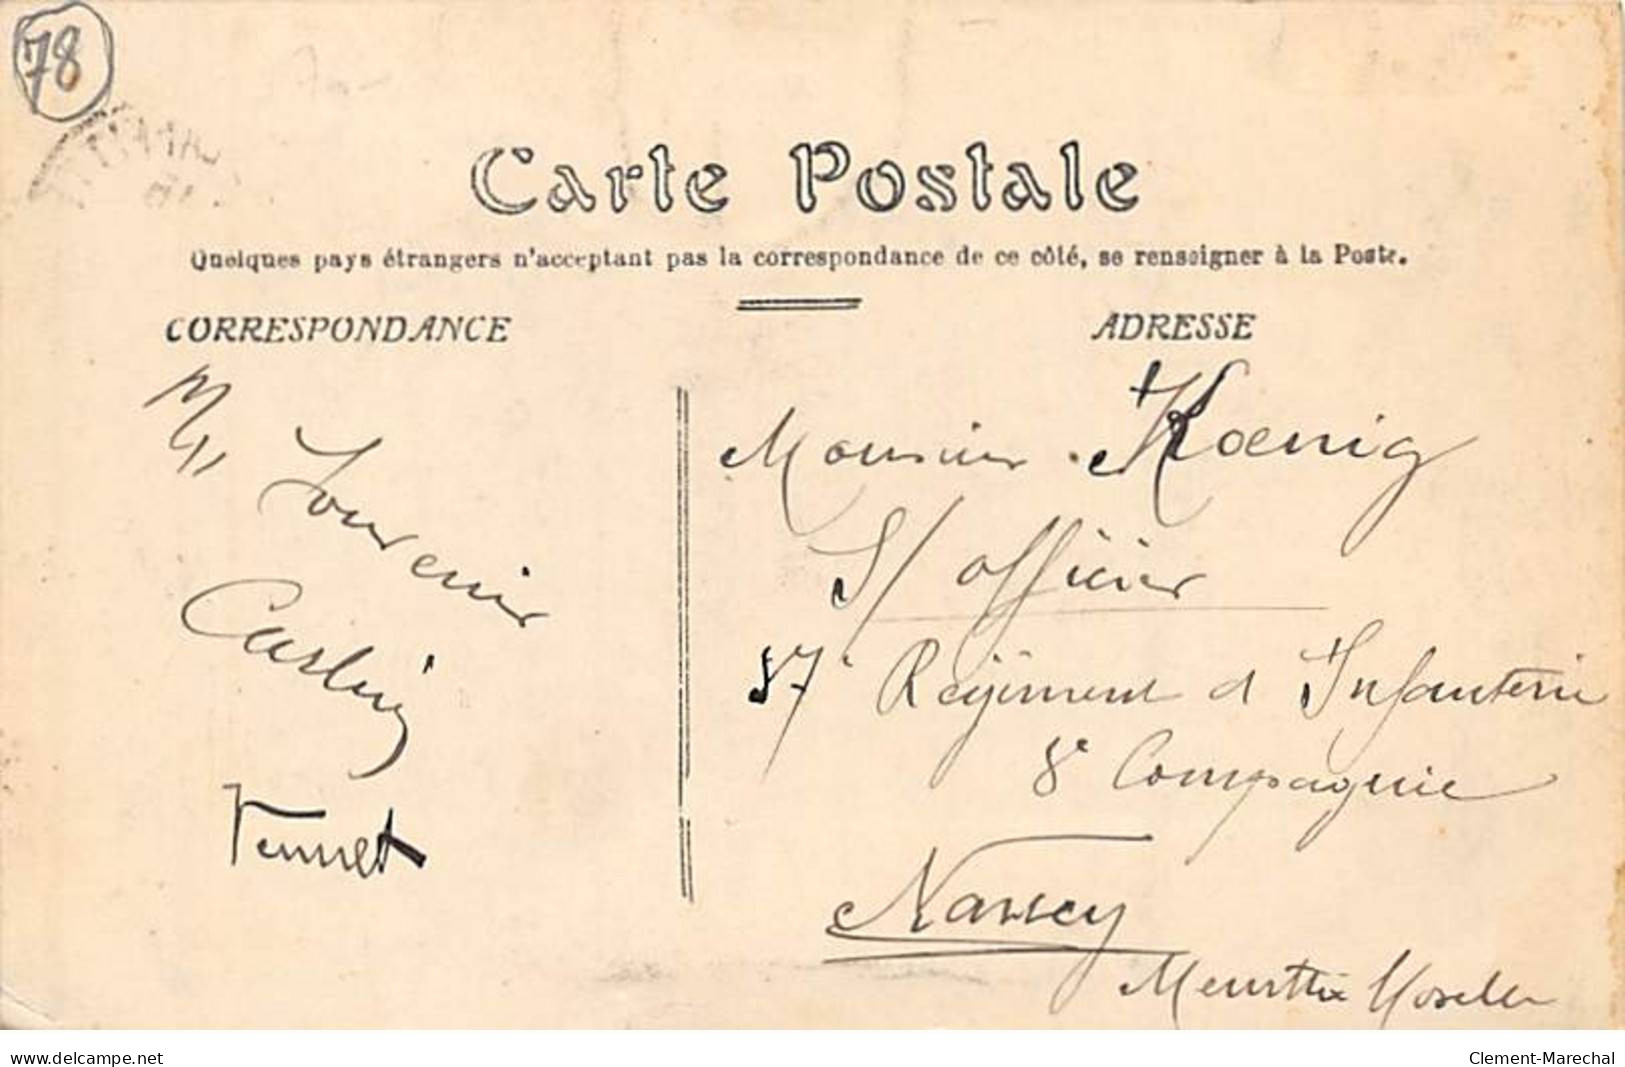 78
Carte Postale
Quelques pays étrangers n'acceptant pas la correspondance de ce côté, se renseigner à la Poste.
CORRESPONDANCE
Souvenir
ADRESSE
Monsieur Koenig
S/officier
37e Regiment d Infanterie
8e Compagnie
Nancy
Meurthe Moselle
www.delcampe.net
Clement-Marechal